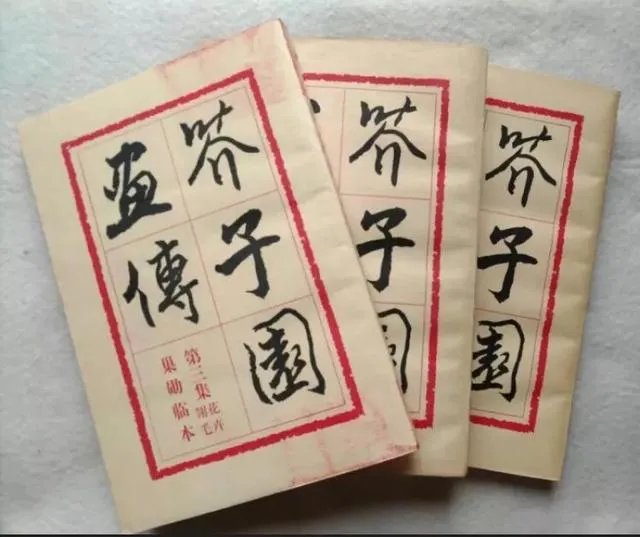 芥子園
畫傳
第三集 花卉翎毛
巢勛临本
芥子園
芥子園